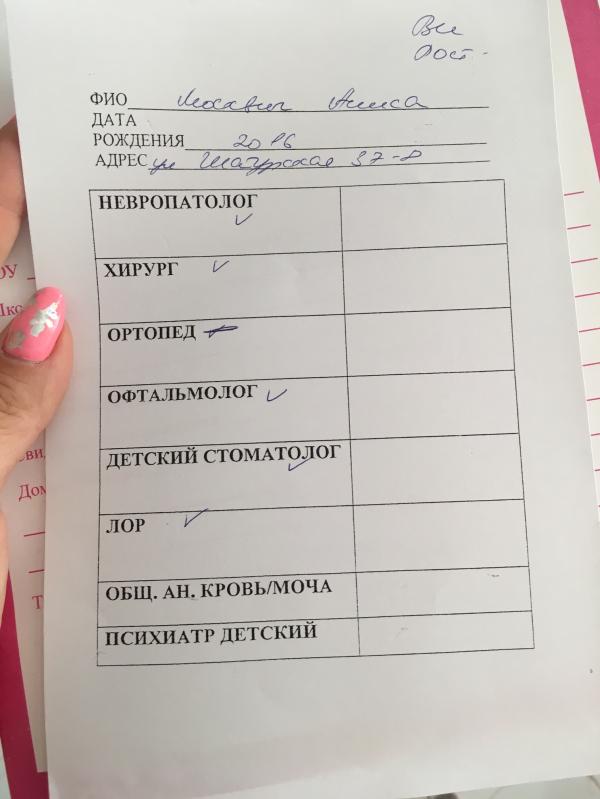 Вес
Рост -
ФИО Москвич Алиса
ДАТА
РОЖДЕНИЯ 2016
АДРЕС ул Шатурская 37-8
НЕВРОПАТОЛОГ
ХИРУРГ
ОРТОПЕД
ОФТАЛЬМОЛОГ
ДЕТСКИЙ СТОМАТОЛОГ
ЛОР
ОБЩ. АН. КРОВЬ/МОЧА
ПСИХИАТР ДЕТСКИЙ